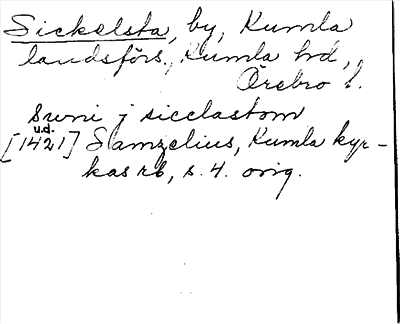 Sickelsta, by, Kumla
landsförs., Kumla hd,
Örebro l.
Suni j sicclastom
u.d.
[1421] Samzelius, Kumla kyr-
kas rb, s. 4. orig.